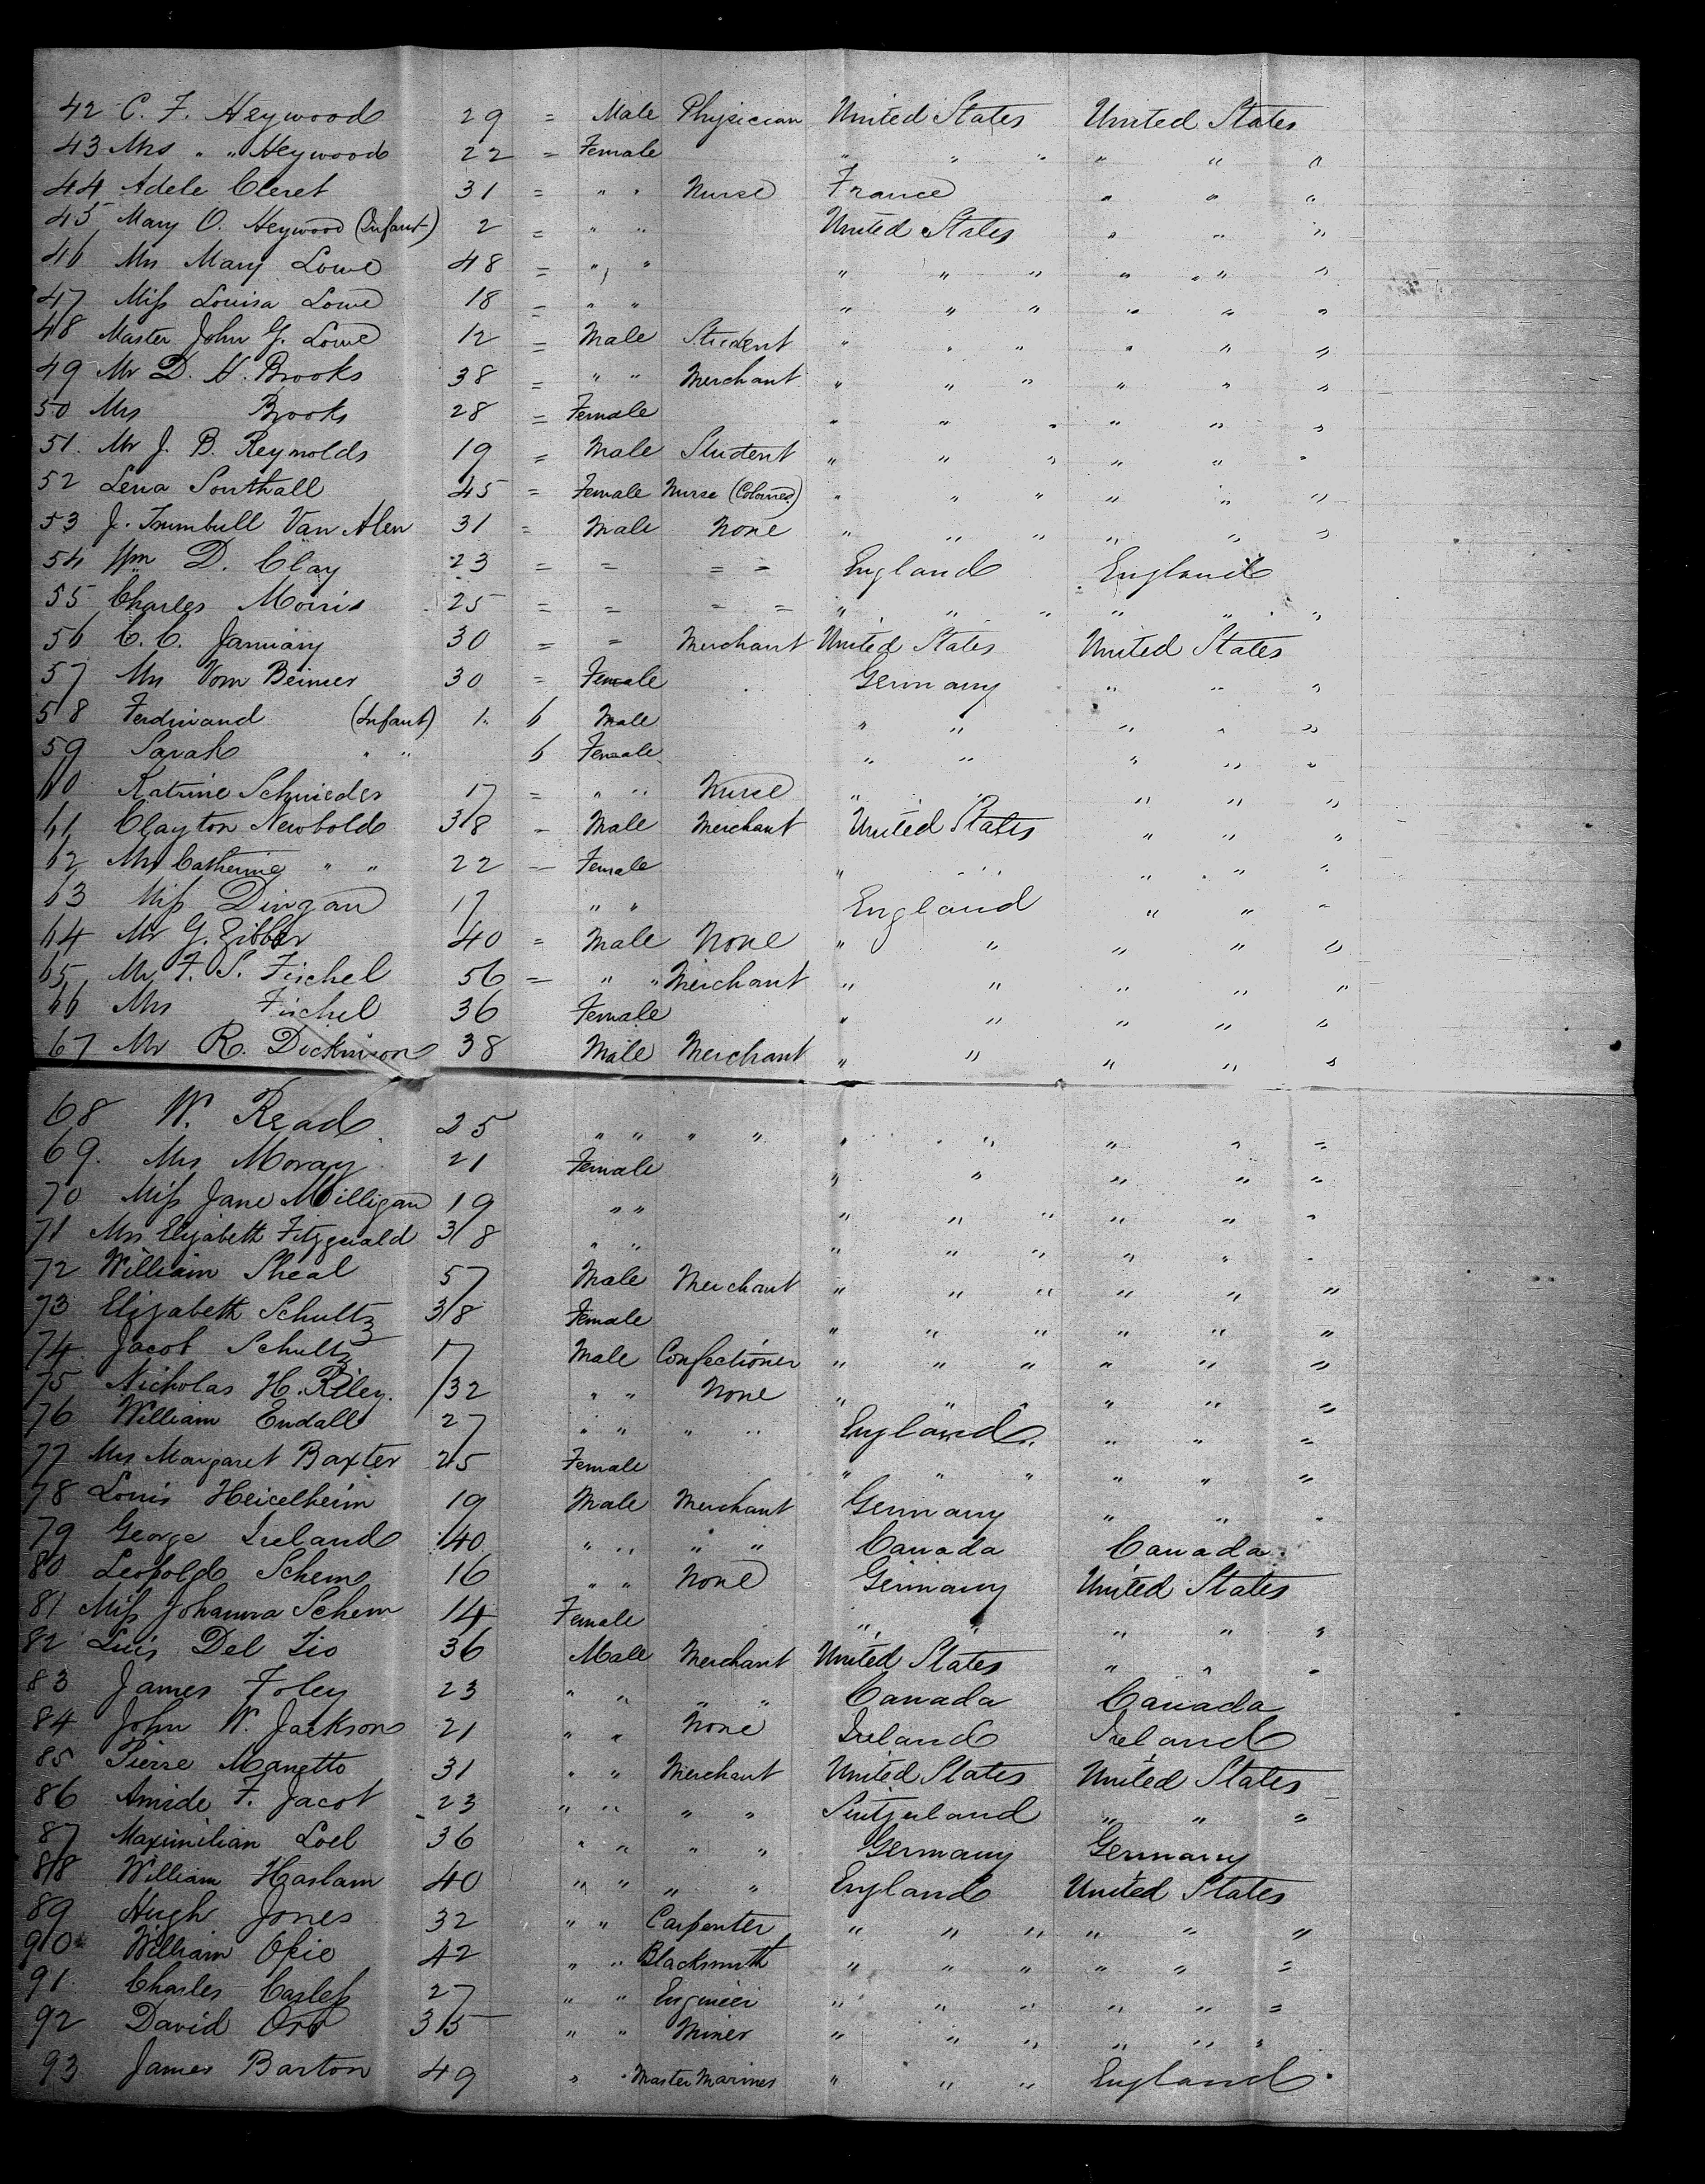 42 C. F. Heywood 29 = Male Physician United States United States
43 Mrs " " Heywood 22 = Female " " " " " "
44 Adele Cleret 31 = " " Nurse France " " "
45 Mary O. Heywood (Infant) 2 = " " United States " " "
46 Mrs Mary Lowe 48 = " " " " " " " "
47 Miss Louisa Lowe 18 = " " " " " " " "
48 Master John G. Lowe 12 = Male Student " " " " " "
49 Mr D. H. Brooks 38 = " " Merchant " " " " " "
50 Mrs Brooks 28 = Female " " " " " "
51. Mr J. B. Reynolds 19 = Male Student " " " " " "
52 Lena Southall 45 = Female Nurse (Colored) " " " " " "
53 J. Trumbull Van Alen 31 = Male None " " " " " "
54 Wm D. Clay 23 = = = = England England
55 Charles Morris 25 = = = = " " " " " "
56 C. C. January 30 = = Merchant United States United States
57 Mrs Vom Beimer 30 = Female Germany " " "
58 Ferdinand (Infant) 1. 6 Male " " " " "
59 Sarah " " 6 Female " " " " "
60 Katrine Schnieder 17 = " " Nurse " " " " "
61 Clayton Newbold 38 = Male Merchant United States " " "
62 Mrs Catherine " " 22 = Female " " " " "
63 Miss Dingan 17 " " England " " "
64 Mr G. Zibber 40 = Male None " " " " "
65 Mr F. S. Fischel 56 = " " Merchant " " " " "
66 Mrs Fischel 36 Female " " " " "
67 Mr R. Dickinson 38 Male Merchant " " " " "
68 W. Read 25 " " " " " " " " " "
69. Mrs Moray 21 Female " " " " "
70 Miss Jane Milligan 19 " " " " " " " "
71 Mrs Elizabeth Fitzgerald 38 " " " " " " " "
72 William Sheal 57 Male Merchant " " " " " "
73 Elizabeth Schultz 38 Female " " " " " "
74 Jacob Schultz 17 Male Confectioner " " " " " "
75 Nicholas H. Riley. 32 " " None " " " " " "
76 William Endall 27 " " " " England " " "
77 Mrs Margaret Baxter 25 Female " " " " " "
78 Louis Heicelheim 19 Male Merchant Germany " " "
79 George Ireland 40 " " " " Canada Canada
80 Leopold Schem 16 " " None Germany United States
81 Miss Johanna Schem 14 Female " " " " "
82 Luis Del Zio 36 Male Merchant United States " " "
83 James Foley 23 " " " " Canada Canada
84 John W. Jackson 21 " " None Ireland Ireland
85 Pierre Manetto 31 " " Merchant United States United States
86 Amide F. Jacot 23 " " " " Switzerland " " "
87 Maximilian Loel 36 " " " " Germany Germany
88 William Haslam 40 " " " " England United States
89 Hugh Jones 32 " " Carpenter " " " " " "
90 William Opie 42 " " Blacksmith " " " " " "
91 Charles Carless 27 " " Engineer " " " " " "
92 David Orr 35 " " Miner " " " " " "
93 James Barton 49 " " Master Mariner " " " England